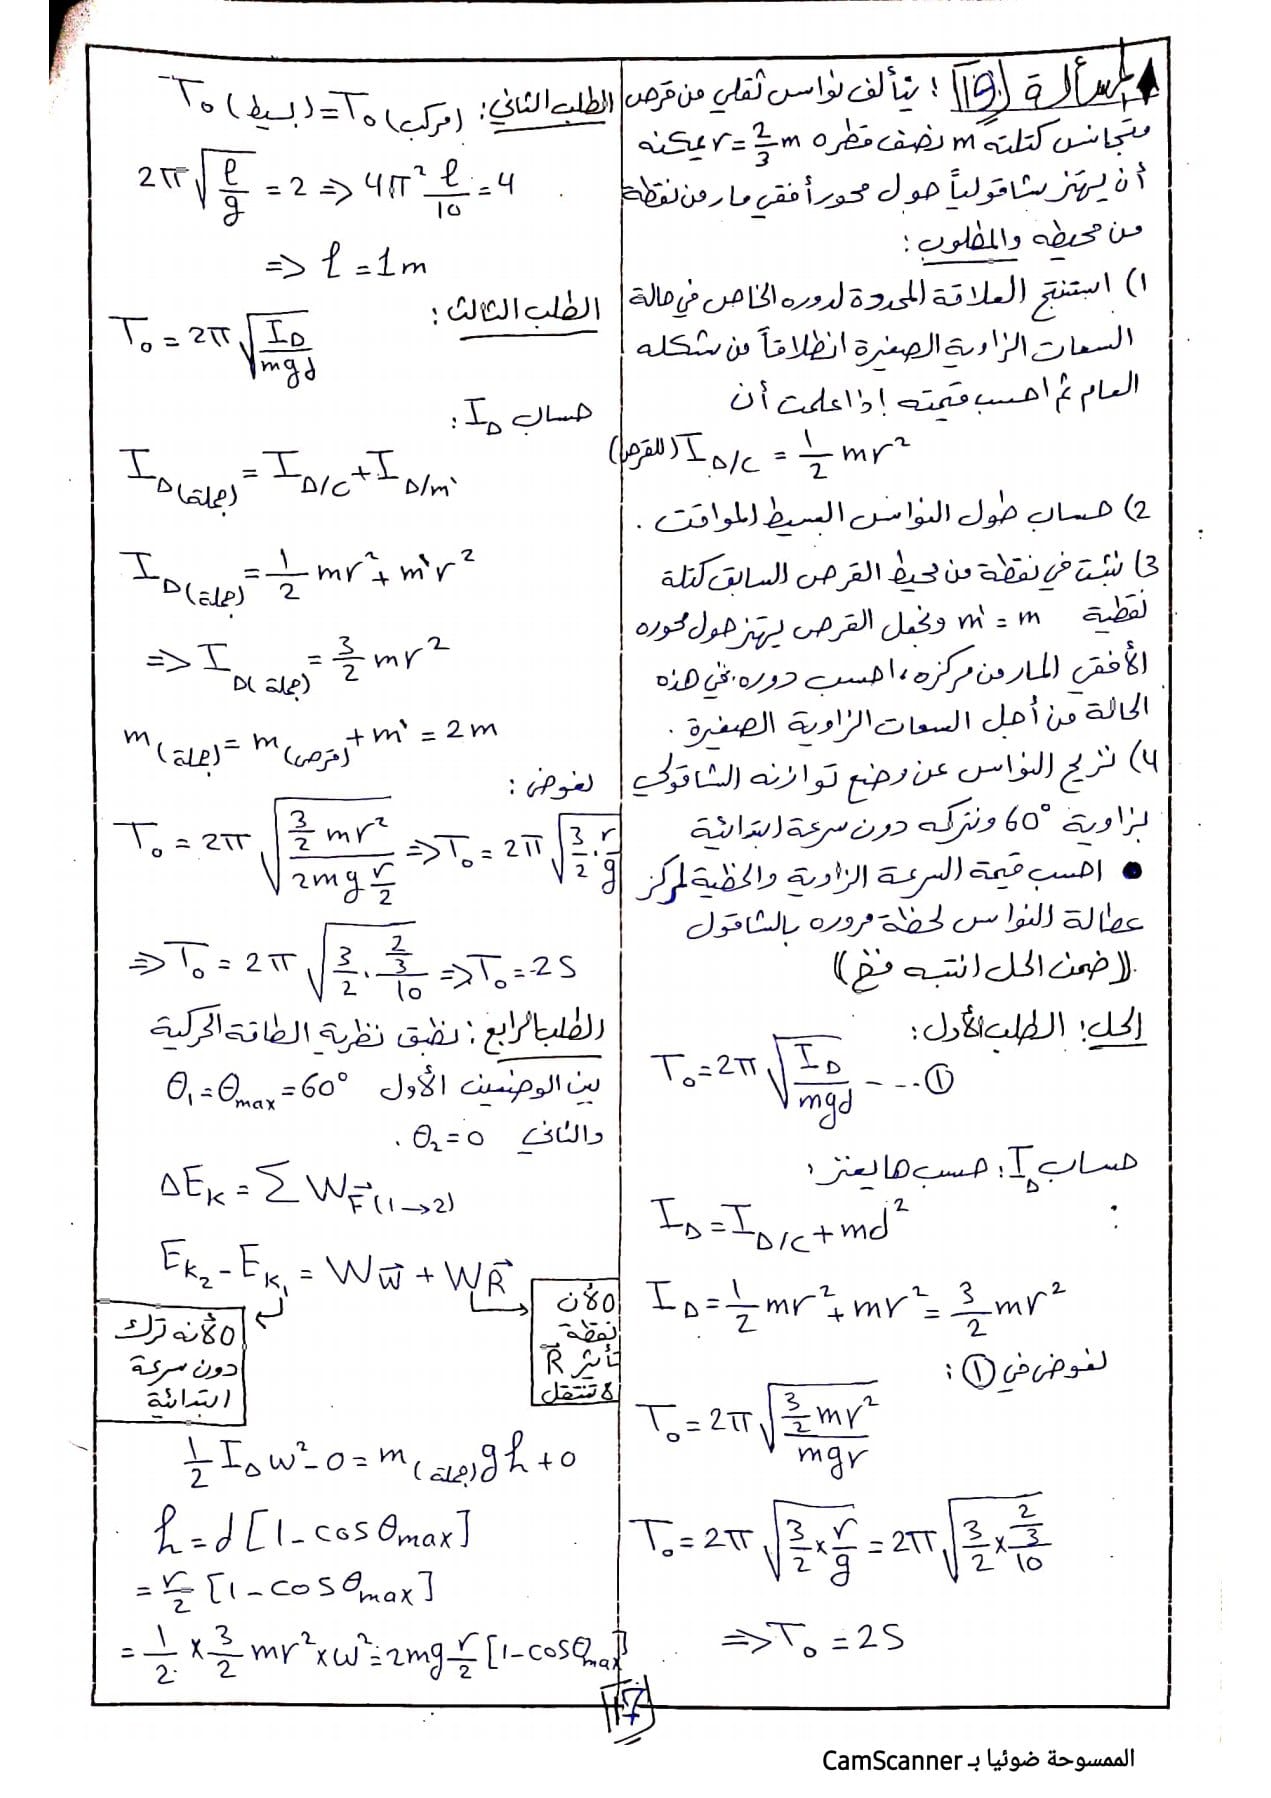 مسألة (19): يتألف نواس ثقلي من قرص
متجانس كتلته m نصف قطره r = 2/3 m يمكنه
أن يهتز شاقولياً حول محور أفقي مار من نقطة
من محيطه والمطلوب:
1) استنتج العلاقة المحددة لدوره الخاص في حالة
السعات الزاوية الصغيرة انطلاقاً من شكله
العام ثم احسب قيمته إذا علمت أن
(للقرص) I_Δ/C = 1/2 mr²
2) حساب طول النواس البسيط المواقت.
3) نثبت في نقطة من محيط القرص السابق كتلة
نقطية m' = m ونجعل القرص يهتز حول محوره
الأفقي المار من مركزه، احسب دوره في هذه
الحالة من أجل السعات الزاوية الصغيرة.
4) نزيح النواس عن وضع توازنه الشاقولي
بزاوية 60° ونتركه دون سرعة ابتدائية
• احسب قيمة السرعة الزاوية والخطية لمركز
عطالة النواس لحظة مروره بالشاقول
((ضمن الحل انتبه فخ))
الحل: الطلب الأول:
T₀ = 2π √(I_Δ/mgd) --- ①
حساب I_Δ: حسب هايغنز:
I_Δ = I_Δ/C + md²
I_Δ = 1/2 mr² + mr² = 3/2 mr²
نعوض في ①:
T₀ = 2π √((3/2 mr²)/(mgr))
T₀ = 2π √(3/2 × r/g) = 2π √(3/2 × (2/3)/10)
⇒ T₀ = 2S
الطلب الثاني: T₀ (بسيط) = T₀ (مركب)
2π √(ℓ/g) = 2 ⇒ 4π² ℓ/10 = 4
⇒ ℓ = 1m
الطلب الثالث:
T₀ = 2π √(I_Δ/mgd)
حساب I_Δ:
I_Δ(جملة) = I_Δ/C + I_Δ/m'
I_Δ(جملة) = 1/2 mr² + m'r²
⇒ I_Δ(جملة) = 3/2 mr²
m(جملة) = m(قرص) + m' = 2m
نعوض:
T₀ = 2π √((3/2 mr²)/(2mg r/2)) ⇒ T₀ = 2π √(3/2 . r/g)
⇒ T₀ = 2π √(3/2 . (2/3)/10) ⇒ T₀ = 2S
الطلب الرابع: نطبق نظرية الطاقة الحركية
بين الوضعين الأول θ₁ = θmax = 60°
والثاني θ₂ = 0.
ΔE_K = Σ W_F⃗ (1→2)
E_K₂ - E_K₁ = W_W⃗ + W_R⃗
0 لأن
نقطة
تأثير R⃗
لا تنتقل
0 لأنه ترك
دون سرعة
ابتدائية
1/2 I_Δ ω² - 0 = m(جملة) gh + 0
h = d [1 - cos θmax]
= r/2 [1 - cos θmax]
= 1/2 × 3/2 mr² × ω² = 2mg r/2 [1 - cosθmax]
17
الممسوحة ضوئيا بـ CamScanner